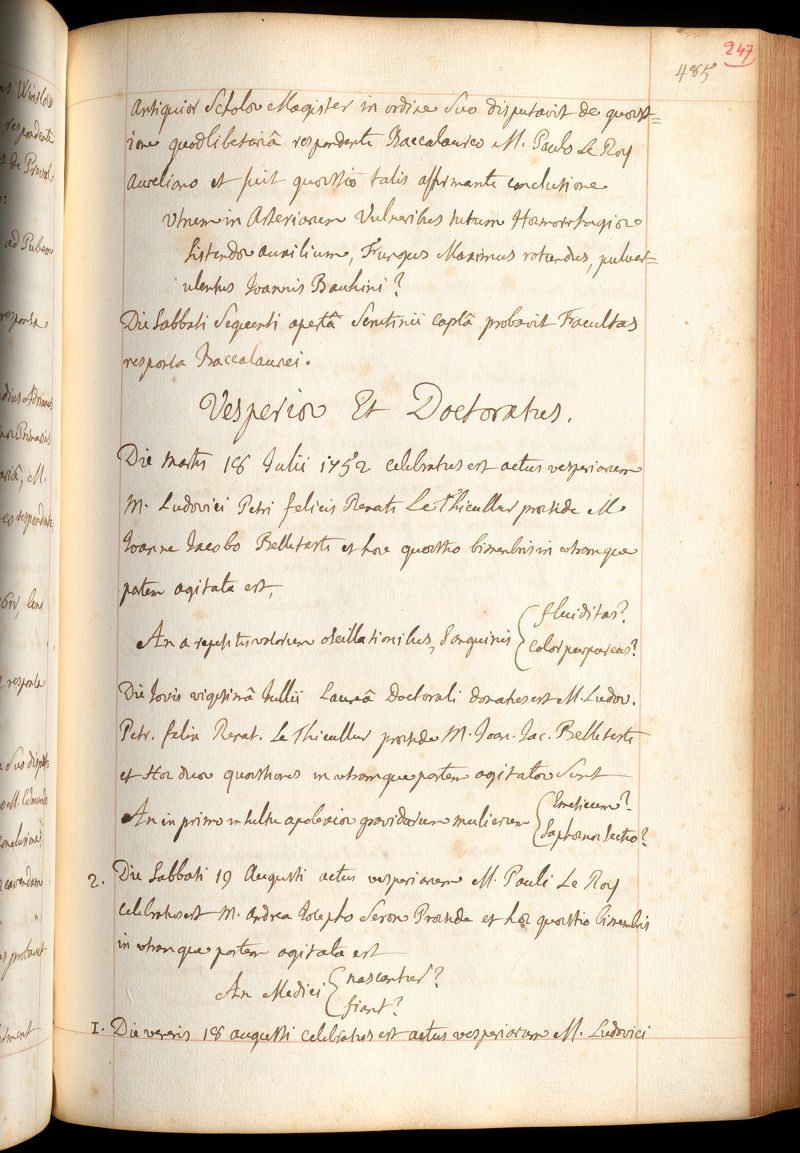 247
485
Antiquior Scholæ Magister in ordine suo disputavit de quæst=
ione quodlibetariâ respondente Baccalaureo M. Paulo Le Roy
Aureliano et fuit quæstio talis affirmante conclusione
Utrum in Arteriarum Vulneribus tutum Hæmorrhagiæ
Sistendæ auxilium, Fungus Maximus rotundus, pulver=
ulentus Joannis Bauhini?
Die Sabbati Sequenti apertâ Scrutinii capsâ probavit Facultas
responsa Baccalaurei.
Vesperiæ Et Doctoratus.
Die martis 18 Julii 1752 celebratus est actus vesperiarum
M. Ludovici Petri felicis Renati Le Thieullier præside M.
Joanne Jacobo Belleteste et hæc quæstio bimembris in utramque
partem agitata est,
An a repetitis vasorum oscillationibus, Sanguinis { fluiditas?
color purpureus?
Die Jovis vigesimâ Jullii Laureâ Doctorali donatus est M. Ludov.
Petr. felix Renat. Le Thieullier præside M. Joan. Jac. Belleteste
et Hæ duæ quæstiones in utramque partem agitatæ sunt
An in primo insultu apoplexiæ gravidarum mulierum { Emeticum?
Saphenæ Sectio?
2. Die Sabbati 19 Augusti actus vesperiarum M. Pauli Le Roy
celebratus est M. Andrea Josepho Seron Præside et hæc quæstio bimembris
in utramque partem agitata est
An Medici { nascantur?
fiant?
1. Die veneris 18 augusti celebratus est actus vesperiarum M. Ludovici
ad Pubem
responsa